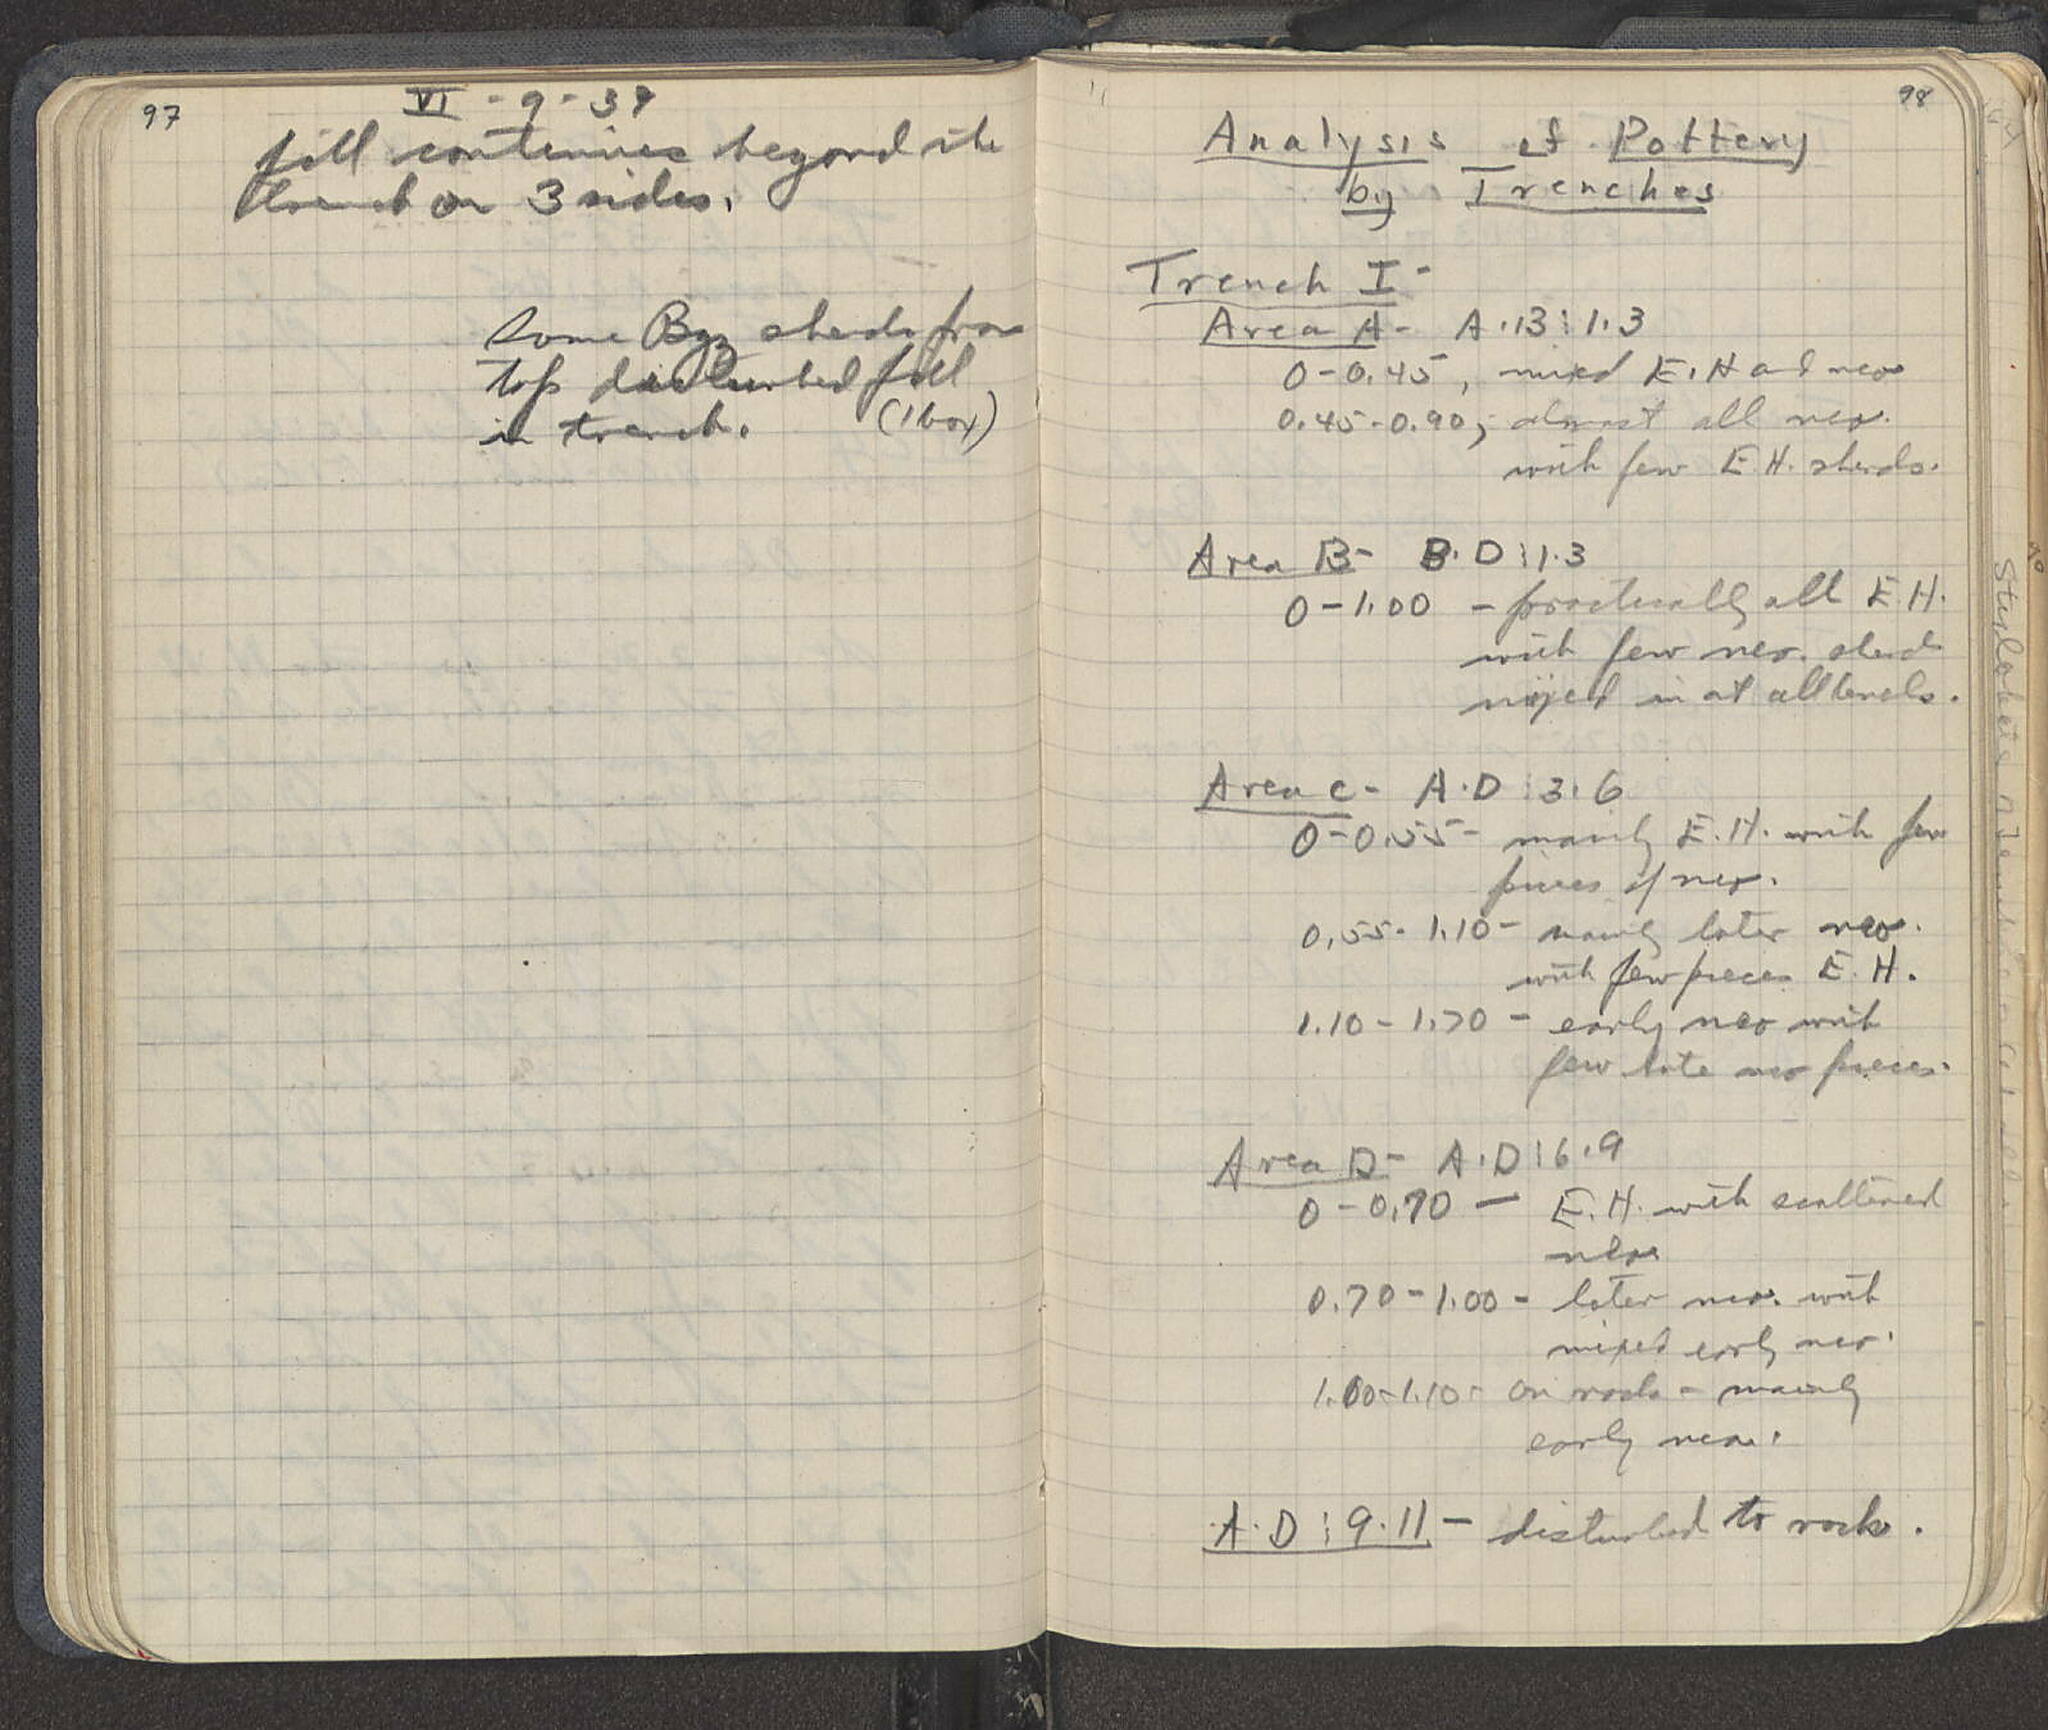 97
VI - 9 - 37
fill continues beyond the
trench on 3 sides.
Some Byz sherds from
top disturbed fill
in trench. (1 box)
98
Analysis of Pottery
by Trenches
Trench I -
Area A - A.B : 1.3
0 - 0.45, mixed E.H and neo
0.45 - 0.90, almost all neo.
with few E.H. sherds.
Area B - B.D : 1.3
0 - 1.00 - practically all E.H.
with few neo. sherds
mixed in at all levels.
Area C - A.D : 3.6
0 - 0.55 - mainly E.H. with few
pieces of neo.
0.55 - 1.10 - mainly later neo.
with few pieces E.H.
1.10 - 1.70 - early neo with
few late neo pieces.
Area D - A.D : 6.9
0 - 0.70 - E.H. with scattered
neo.
0.70 - 1.00 - later neo. with
mixed early neo.
1.00 - 1.10 - on rock - mainly
early neo.
A.D : 9.11 - disturbed to rock.